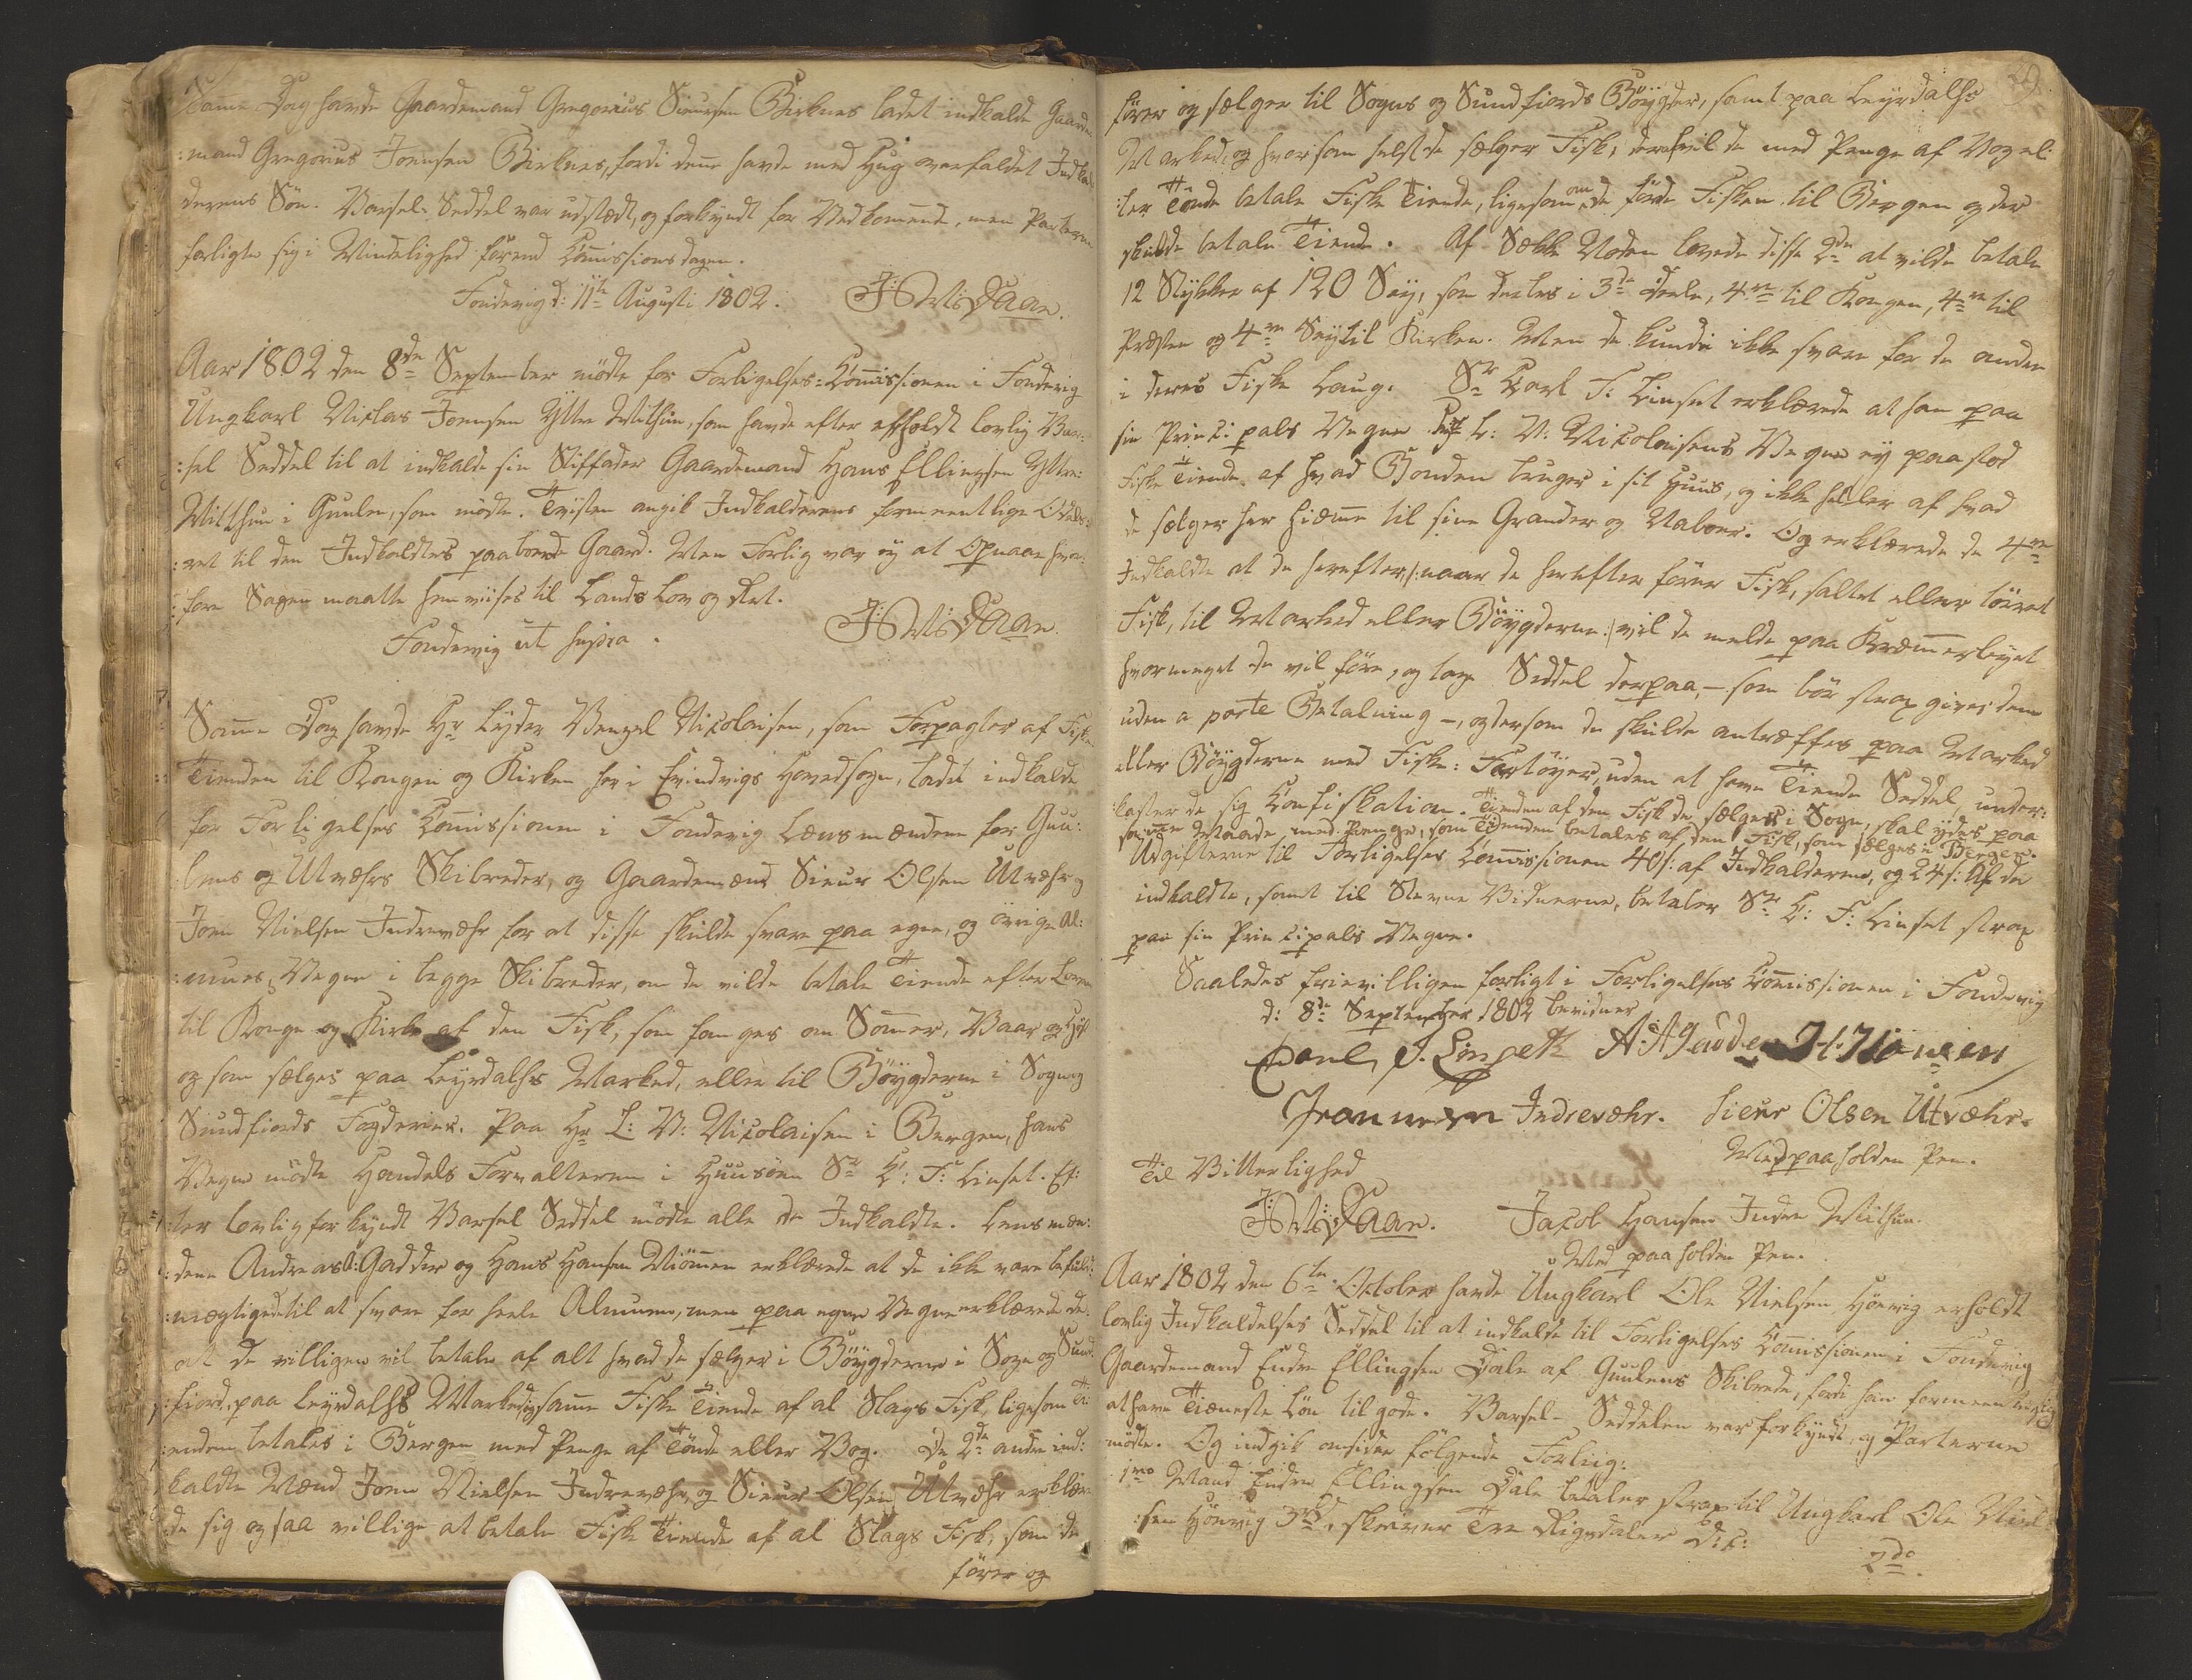 Samme Dag havde Gaardemand Gregorius Siursen Birknes ladet indkalde Gaarde
:mand Gregorius Joensen Birknes, fordi denne havde med Hug overfaldet Indkal
derens Søn. Varsel-Seddel var udstædt, og forkyndt for Vedkommende, men Parterne
forligte sig i Mindelighed førend Commissionsdagen.
Sondevig d: 11te Augusti 1802. JHMDaae.
Aar 1802 den 8de September mødte for Forligelses-Commissionen i Sondevig
Ungkarl Niclas Joensen Ytre Mithun, som havde efter erholdt lovlig Var:
:sel Seddel til at indkalde sin Stiffader Gaardemand Hans Ellingsen Yttre:
Mitthun i Guulen, som mødte. Tvisten angik Indkalderens formeentlige Odels:
:ret til den Indkaldtes paaboende Gaard. Men Forlig var ej at opnaae hvor:
:fore Sagen maatte henvises til Lands Lov og Ret.
Sondevig ut supra. JHMDaae
Samme Dag havde Hr Lyder Wenzel Nicolaisen, som Forpagter af Fiske
Tienden til Kongen og Kirken her i Evindvigs Hovedsogn, ladet indkalde
for Forligelses Commissionen i Sondevig Lensmændene for Guu:
:lens og Utvæhrs Skibreder, og Gaardemænd Siuur Olsen Utvæhr og
Joen Nielsen Indrevæhr for at disse skulde svare paa egne, og øvrige Al:
:mues Vegne i begge Skibreder, om de vilde betale Tiende efter Loven
til Konge og Kirke af den Fisk, som fanges om Sommer, Vaar og Høst
og som sælges paa Leyrdalhs Marked, eller til Bøygderne i Sogn og
Sundfiords Fogderier. Paa Hr L: W: Nicolaisen i Bergen, hans
Vegne mødte Handels Forvalteren i Huusøen Sr C: F: Linset. Ef:
ter lovlig forkyndt Varsel Seddel mødte alle de Indkaldte. Lensmæn:
:dene Andreas A: Gadder og Hans Hansen Miømen erklærede at de ikke vare befuld:
:mægtigede til at svare for heele Almuen, men paa egne Vegne erklærede de
at de villigen vil betale af alt hvad de sælger i Bøygderne i Sogn og Sund
:fiord, paa Leyrdalhs Marked, og samme Fiske Tiende af al Slags Fisk, ligesom Ti
:enden betales i Bergen med Penge af Tønde eller Vog. De 2de andre ind:
kaldte Mænd Joen Nielsen Indrevæhr og Siuur Olsen Utvæhr erklære
de sig ogsaa villige at betale Fiske Tiende af al Slags Fisk, som de
fører og
29.
fører og sælger til Sogns og Sundfiords Bøygder, samt paa Leyrdalhs
Marked, og hvorsom helst de sælger Fisk, deraf vil de med Penge af Vog el:
:ler Tønde betale Fiske Tiende, ligesom om de førte Fisken til Bergen og der
skulde betale Tiende. Af Sække Noden lovede disse 2de at vilde betale
12 Stykker af 120 Sey, som deeles i 3de Deele, 4re til Kongen, 4re til
Præsten og 4re Sey til Kirken. Men de kunde ikke svare for de andre
i deres Fiske Laug. Sr Carl F. Linset erklærede at han paa
sin Principals Vegne L: W: Nicolaisens Vegne ey paastod
Fiske Tiende af hvad Bonden bruger i sit Huus, og ikke heller af hvad
de sælger her hiemme til sine Grander og Naboer. Og erklærede de 4re
Indkaldte at de herefter /: naar de herefter fører Fisk, saltet eller tørret
Fisk, til Marked eller Bøygderne :/ vil de melde paa Kræmmerleyet
hvormeget de vil føre, og tage Seddel derpaa, – som bør strax gives dem
uden a parte Betalning –, og dersom de skulde antræffes paa Marked
eller Bøygderne med Fiske: Fartøyer, uden at have Tiende Seddel, under:
:kaster de sig Confiskation. Tienden af den Fisk de sælger i Sogn, skal ydes paa
samme Maade med Penge, som Tienden betales af den Fisk, som sælges i Bergen.
Udgifterne til Forligelses Commissionen 40 s: af Indkalderen, og 24 s: af de
indkaldte, samt til Stevne Vidnerne, betaler Sr C: F: Linset strax
paa sin Principals Vegne.
Saaledes frievilligen forligt i Forligelses Commissionen i Sondevig
d: 8de September 1802 bevidner
Carl F. Linseth A:A Gadder H:H:Miømen
Joen Indrevæhr. Sieur Olsen Utvæhr.
Med paaholden Pen.
Til Vitterlighed
JHMDaae. Jacob Hansen Indre Mithun.
Med paaholden Pen.
Aar 1802 den 6te October havde Ungkarl Ole Nielsen Hønvig erholdt
lovlig Indkaldelses Seddel til at indkalde til Forligelses Commissionen i Sondevig
Gaardemand Endre Ellingsen Dale af Guulens Skibrede, fordi han formeentlig
at have Tieneste Løn tilgode. Varsel-Seddelen var forkyndt, og Parterne
mødte. Og indgik omsider følgende Forliig:
1mo Mand Endre Ellingsen Dale betaler strax til Ungkarl Ole Niel
:sen Hønvig 3rd, skriver Tre Rigsdaler D: C:
2do.